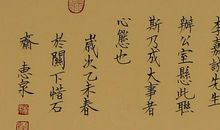 李嘉訪先生
辦公室懸此聯
斯乃成大事者
心態也
歲次乙未春
於關下惜石
齋 惠泉